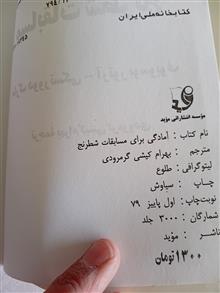 ۷۹۴/۱
کتابخانه ملی ایران
مؤسسه انتشاراتی مؤید
نام کتاب : آمادگی برای مسابقات شطرنج
مترجم : بهرام کیشی گرمرودی
لیتوگرافی : طلوع
چاپ : سیاوش
نوبت چاپ : اول پاییز ۷۹
شمارگان : ۳۰۰۰ جلد
ناشر : مؤید
۱۳۰۰ تومان